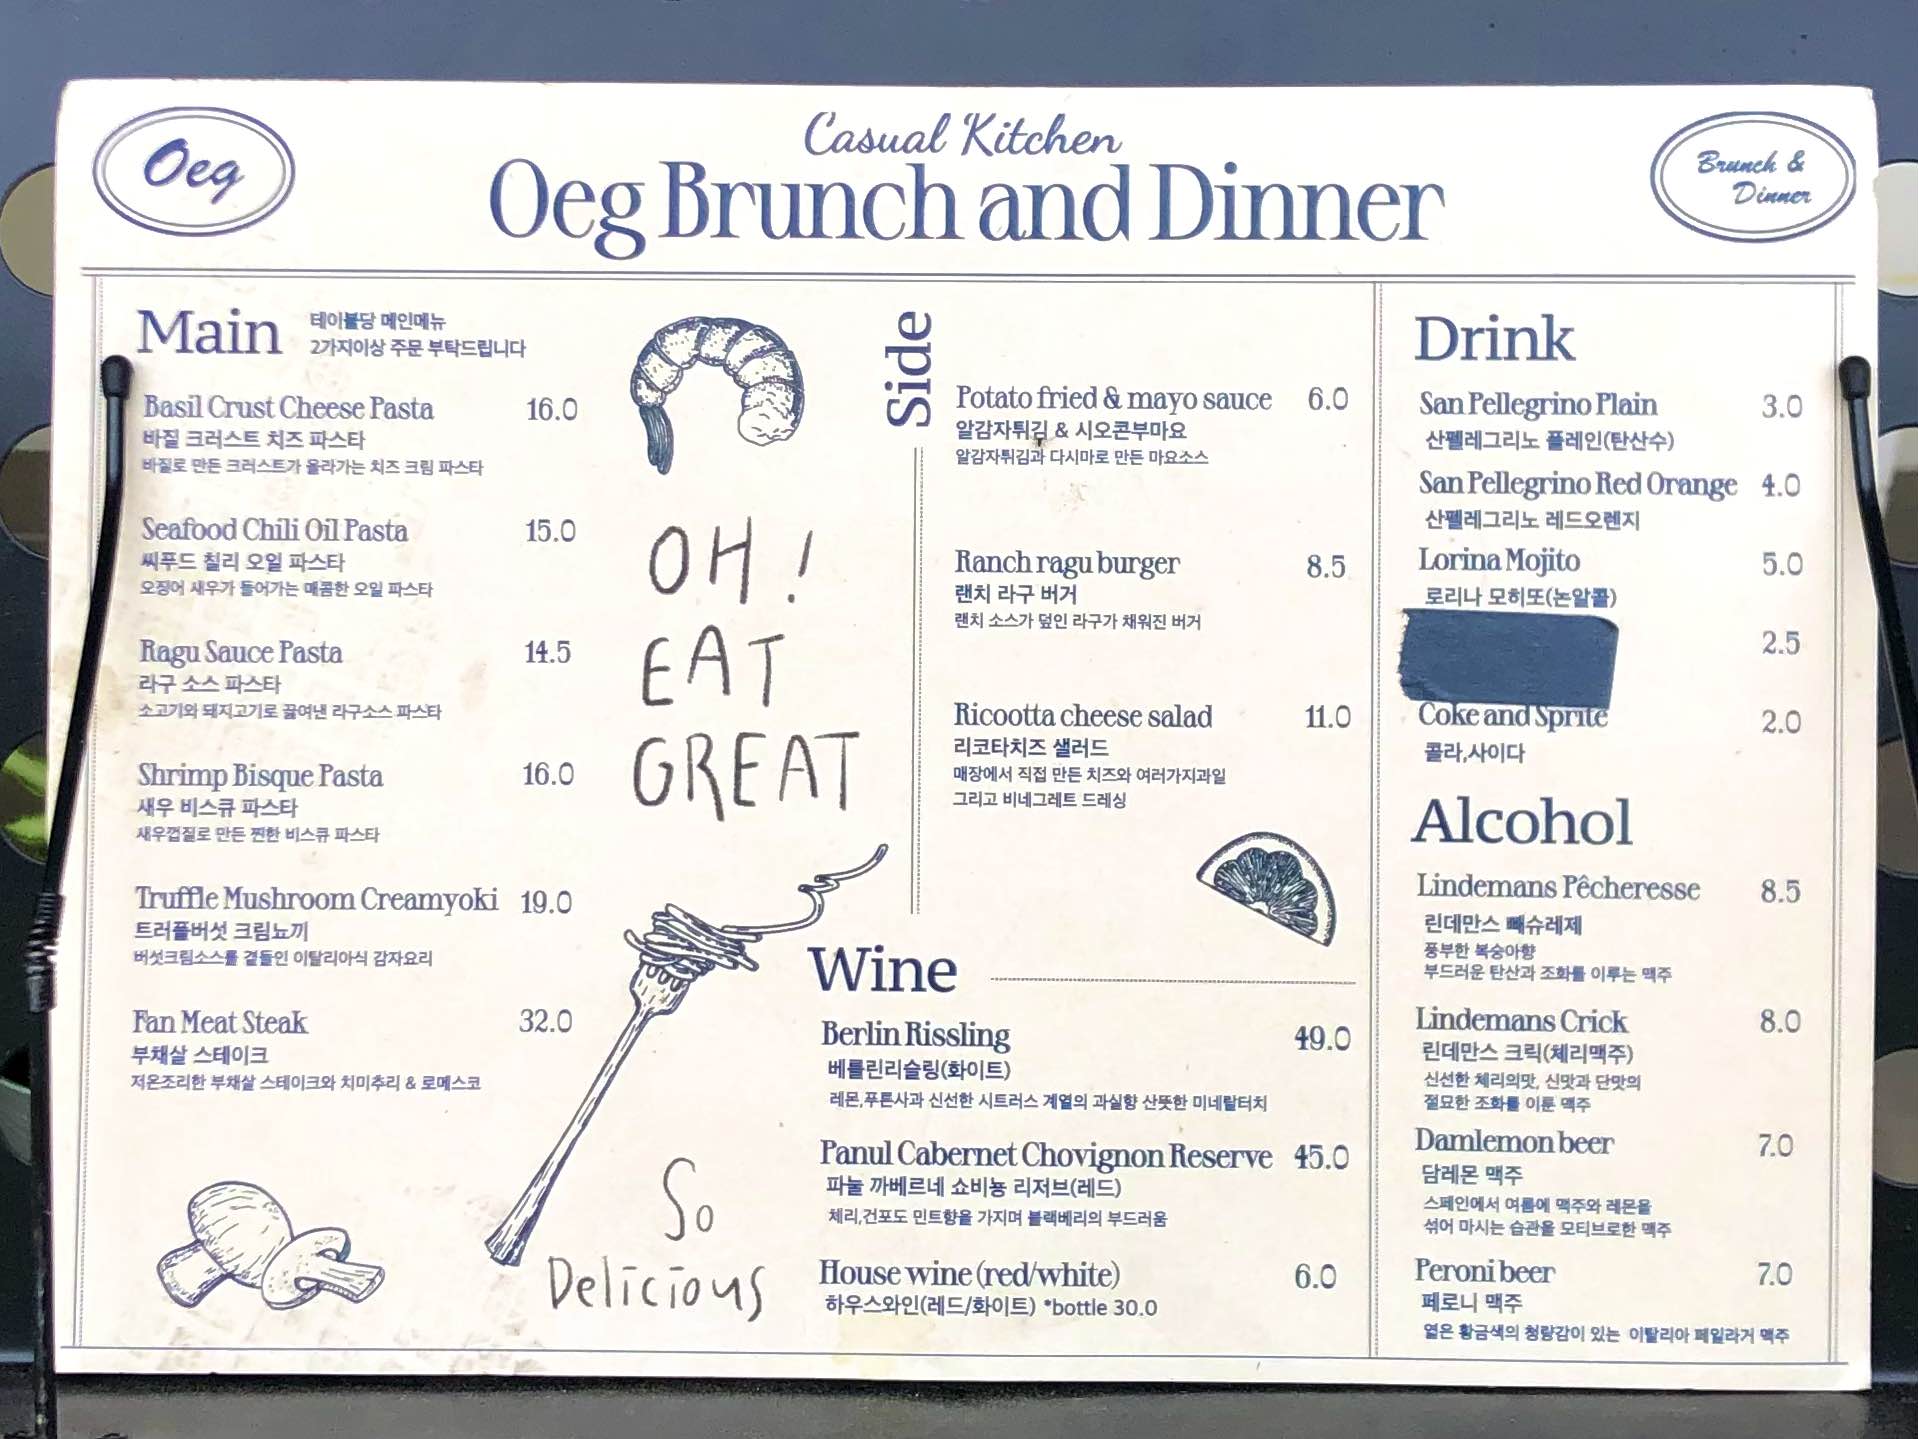 Oeg
Casual Kitchen
Oeg Brunch and Dinner
Brunch &
Dinner
Main
테이블당 메인메뉴
2가지이상 주문 부탁드립니다
Basil Crust Cheese Pasta 16.0
바질 크러스트 치즈 파스타
바질로 만든 크러스트가 올라가는 치즈 크림 파스타
Seafood Chili Oil Pasta 15.0
씨푸드 칠리 오일 파스타
오징어 새우가 들어가는 매콤한 오일 파스타
Ragu Sauce Pasta 14.5
라구 소스 파스타
소고기와 돼지고기로 끓여낸 라구소스 파스타
Shrimp Bisque Pasta 16.0
새우 비스큐 파스타
새우껍질로 만든 찐한 비스큐 파스타
Truffle Mushroom Creamyoki 19.0
트러플버섯 크림뇨끼
버섯크림소스를 곁들인 이탈리아식 감자요리
Fan Meat Steak 32.0
부채살 스테이크
저온조리한 부채살 스테이크와 치미추리 & 로메스코
OH!
EAT
GREAT
So
Delicious
Side
Potato fried & mayo sauce 6.0
알감자튀김 & 시오콘부마요
알감자튀김과 다시마로 만든 마요소스
Ranch ragu burger 8.5
랜치 라구 버거
랜치 소스가 덮인 라구가 채워진 버거
Ricootta cheese salad 11.0
리코타치즈 샐러드
매장에서 직접 만든 치즈와 여러가지과일
그리고 비네그레트 드레싱
Wine
Berlin Rissling 49.0
베를린리슬링(화이트)
레몬,푸른사과 신선한 시트러스 계열의 과실향 산뜻한 미네랄터치
Panul Cabernet Chovignon Reserve 45.0
파눌 까베르네 쇼비뇽 리저브(레드)
체리,건포도 민트향을 가지며 블랙베리의 부드러움
House wine (red/white) 6.0
하우스와인(레드/화이트) *bottle 30.0
Drink
San Pellegrino Plain 3.0
산펠레그리노 플레인(탄산수)
San Pellegrino Red Orange 4.0
산펠레그리노 레드오렌지
Lorina Mojito 5.0
로리나 모히또(논알콜)
2.5
Coke and Sprite 2.0
콜라,사이다
Alcohol
Lindemans Pêcheresse 8.5
린데만스 빼슈레제
풍부한 복숭아향
부드러운 탄산과 조화를 이루는 맥주
Lindemans Crick 8.0
린데만스 크릭(체리맥주)
신선한 체리의맛, 신맛과 단맛의
절묘한 조화를 이룬 맥주
Damlemon beer 7.0
담레몬 맥주
스페인에서 여름에 맥주와 레몬을
섞어 마시는 습관을 모티브로한 맥주
Peroni beer 7.0
페로니 맥주
옅은 황금색의 청량감이 있는 이탈리아 페일라거 맥주